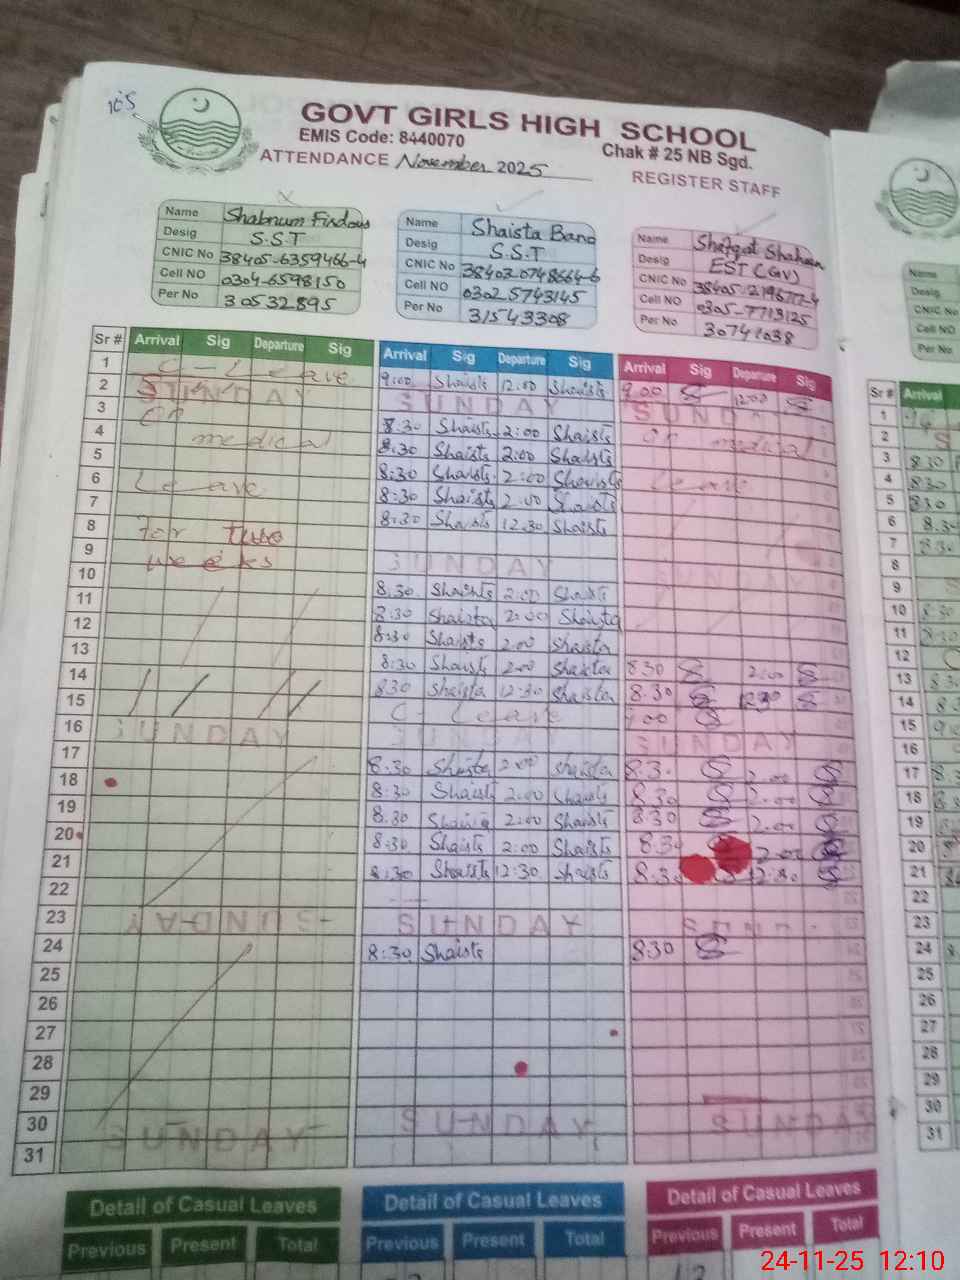 GOVT GIRLS HIGH SCHOOL
EMIS Code: 8440070
Chak # 25 NB Sgd.
ATTENDANCE November 2025
REGISTER STAFF
Name Shabnum Firdous
Desig S.S.T
CNIC No 38405-6359466-4
Cell NO 0304-6598150
Per No 30532895
Name Shaista Bano
Desig S.S.T
CNIC No 38403-0748664-6
Cell NO 0302 5743145
Per No 31543308
Name Shafqat Shaheen
Desig EST (GV)
CNIC No
Cell NO 0305-7713125
Per No
Sr # Arrival Sig Departure Sig Arrival Sig Departure Sig Arrival Sig Departure Sig
1 C-Leave 9:00 Shaista 12:00 Shaista 9.00 12.00
2 SUNDAY SUNDAY SUNDAY
3 on 8.30 Shaista 2:00 Shaista on medical
4 medical 8.30 Shaista 2:00 Shaista
5 8:30 Shaista 2:00 Shaista Leave
6 Leave 8:30 Shaista 2:00 Shaista
7 8:30 Shaista 12.30 Shaista
8 For two
9 weeks SUNDAY SUNDAY
10 8.30 Shaista 2:00 Shaista
11 8:30 Shaista 2:00 Shaista
12 8:30 Shaista 2.00 Shaista
13 8:30 Shaista 2.00 Shaista 8 30 2:00
14 8.30 Shaista 12:30 Shaista 8.30 12.30
15 C-Leave
16 SUNDAY SUNDAY SUNDAY
17 8.30 Shaista 2:00 Shaista 8.3 2.00
18 8:30 Shaista 2:00 Shaista 8.30 2.00
19 8.30 Shaista 2:00 Shaista 8.30 2.00
20 8:30 Shaista 2:00 Shaista 8.30 2.00
21 8:30 Shaista 12:30 Shaista 8.30 12.30
22
23 SUNDAY SUNDAY SUND
24 8:30 Shaista 8.30
25
26
27
28
29
30 SUNDAY SUNDAY SUNDAY
31
Detail of Casual Leaves Detail of Casual Leaves Detail of Casual Leaves
Previous Present Total Previous Present Total Previous Present Total
Name
Desig
CNIC No
Cell NO
Per No
Sr # Arrival
1
2
3 8.30
4 8.30
5 8.30
6 8.30
7 8.30
8
9
10 8.30
11 8.30
12
13
14
15
16
17
18
19
20
21
22
23
24
25
26
27
28
29
30
31
24-11-25 12:10